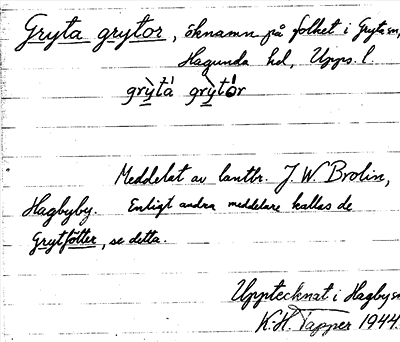 Gryta grytor, öknamn på folket i Gryta sn,
Hagunda hd, Upps. l.
grỳtá grỳtór
Meddelat av lantbr. J. W Brolin,
Hagbyby. Enligt andra meddelare kallas de
Grytfötter, se detta.
Upptecknat i Hagby sn
K. H. Tapper 1944.